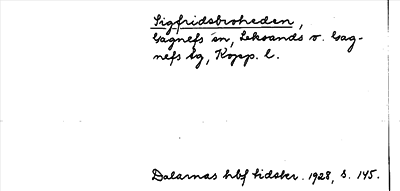 Sigfridsbroheden,
Gagnefs sn, Leksands o. Gag-
nefs tg, Kopp. l.
Dalarnas hbf tidskr. 1928, s. 145.